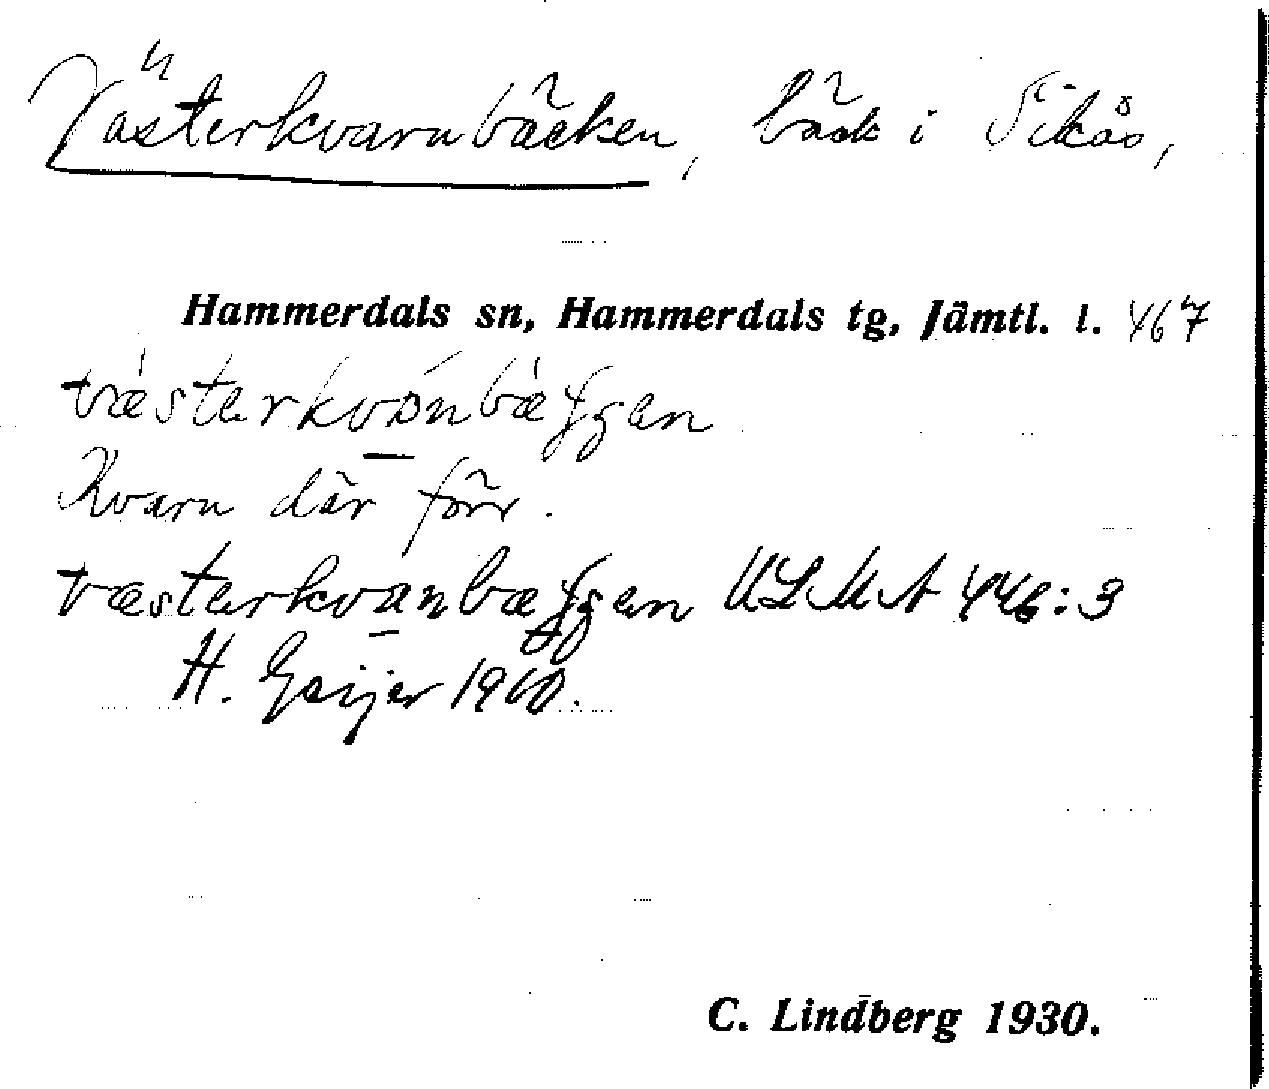 Västerkvarnbäcken, bäck i Sikås,
Hammerdals sn, Hammerdals tg, Jämtl. l. 467
Kvarn där förr.
ULMA 446:3
H. Geijer 1910.
C. Lindberg 1930.